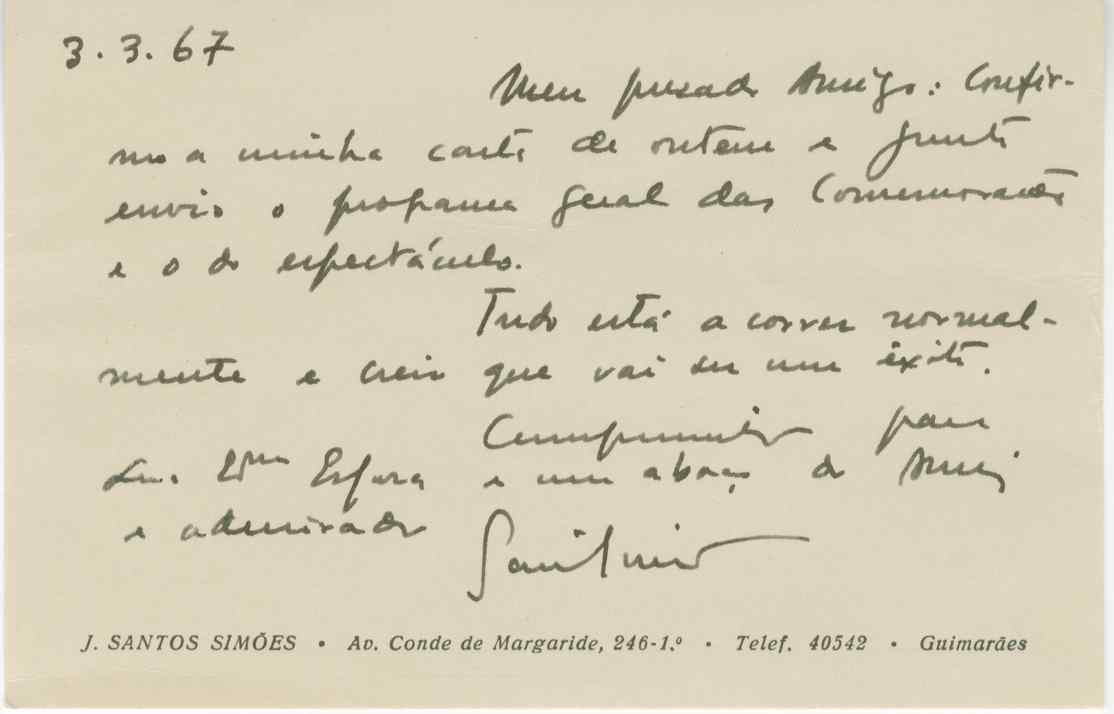 3.3.67
Meu prezado Amigo: Confir-
mo a minha carta de ontem e junto
envio o programa geral das Comemorações
e o do espectáculo.
Tudo está a correr normal-
mente e creio que vai ser um êxito.
Cumprimentos para
Sua Exma Esposa e um abraço do Amigo
e admirador
J. SANTOS SIMÕES • Av. Conde de Margaride, 246-1.º • Telef. 40542 • Guimarães